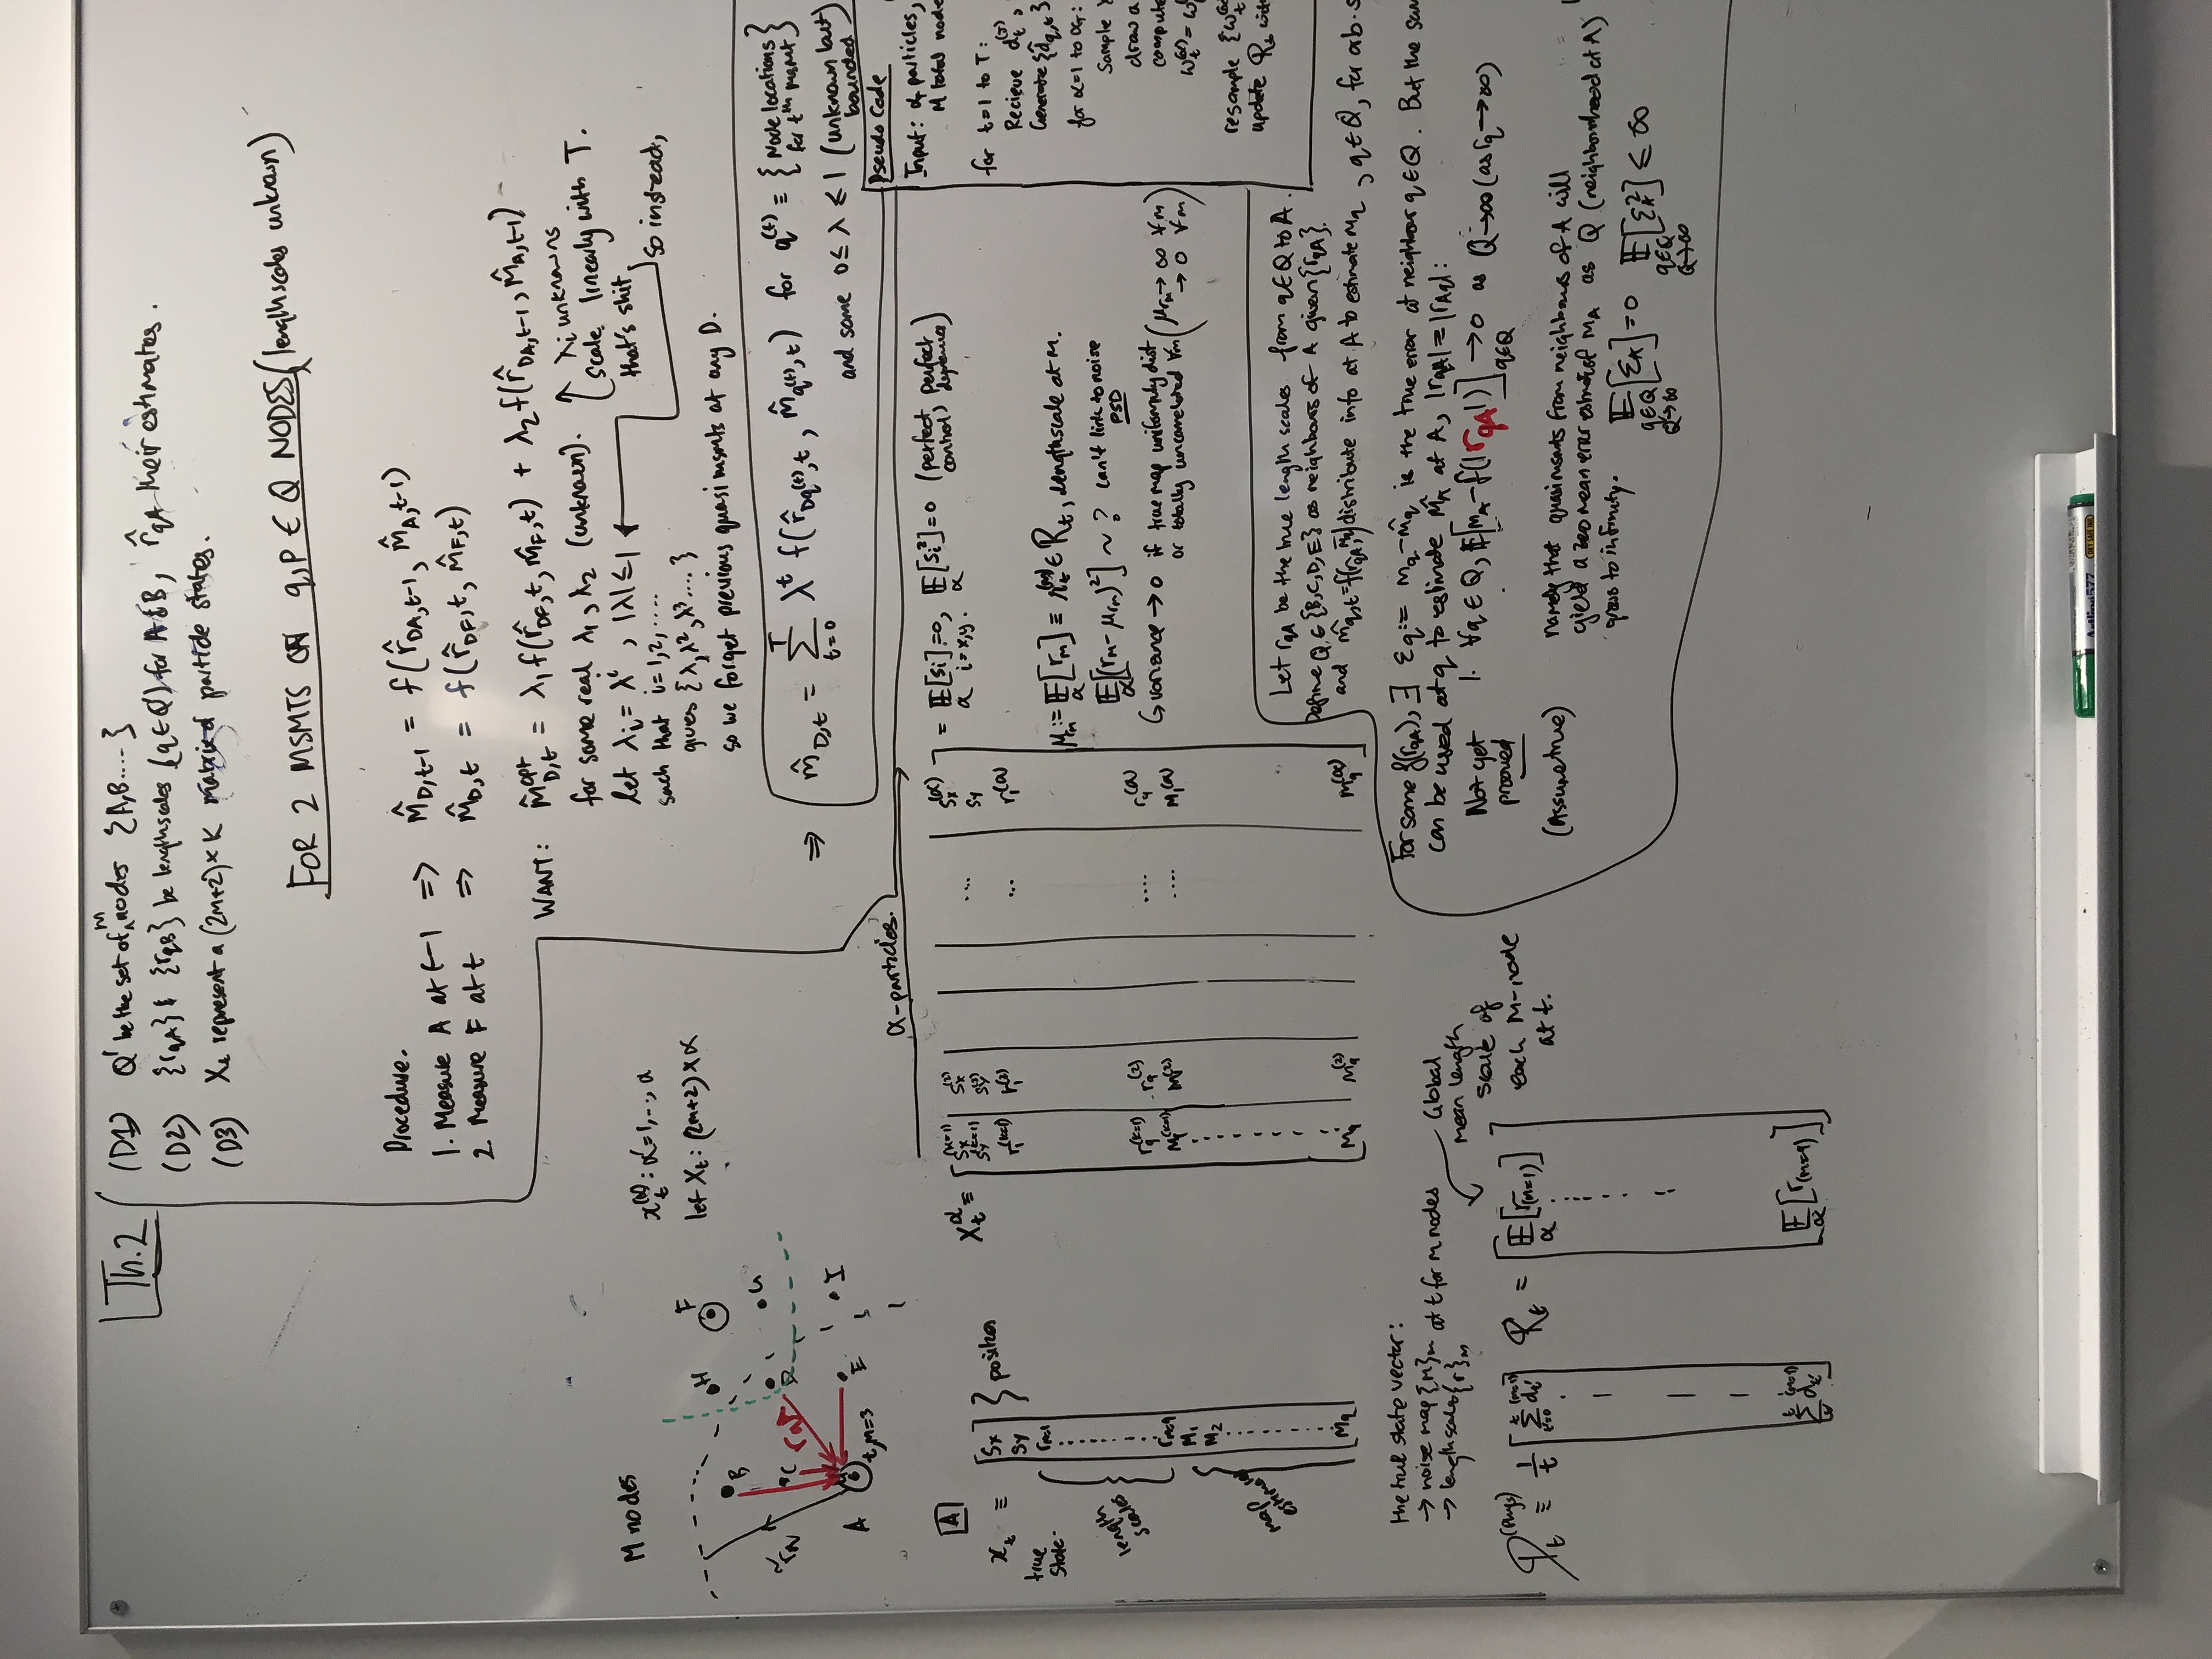 Th.2
(D1) Q' be the set of m nodes {A,B....}
(D2) {r_qA} & {r_qB} be lengthscales (q∈Q') for A & B, r̂_qA their estimates.
(D3) X_t represent a (2m+2)×K matrix of particle states.
FOR 2 MSMTS ON q,p ∈ Q NODES (lengthscales unknown)
Procedure.
1. Measure A at t-1 => m̂_D,t-1 = f(r̂_DA,t-1, m̂_A,t-1)
2. Measure F at t => m̂_D,t = f(r̂_DF,t, m̂_F,t)
WANT: m̂^opt_D,t = λ₁f(r̂_DF,t, m̂_F,t) + λ₂f(r̂_DA,t-1, m̂_A,t-1)
for some real λ₁, λ₂ (unknown).
λi unknowns
scale linearly with T.
that's shit.
So instead,
let λ_i = λ^i, |λ|≤1
such that i=1,2,....
gives {λ,λ²,λ³....}
so we forget previous quasi msmts at any D.
=> m̂_D,t = Σ_{t=0}^{T} λ^t f(r̂_Dq^(t),t, m̂_q^(t),t) for q^(t) ≡ {Node locations
for t^th msmt}
and some 0≤ λ ≤1 (unknown but
bounded)
M nodes
B
C
H
F
D
G
A
E
I
t,m=3
let X_t: (2m+2)×α
α-particles.
A
x_t ≡
true
state.
Sx
Sy
} positions
r_m=1
length
scales
r_m=q
M₁
M₂
map
estimates
M_q
X_t^α ≡
Sx^(k=1) Sx^(2) ... Sx^(α)
Sy^(k=1) Sy^(2) Sy
r₁^(k=1) r₁^(2) ... r₁^(α)
r_q^(k=1) r_q^(2) .... r_q^(α)
M₁^(k=1) M₁^(2) .... M₁^(α)
M_q M_q^(2) M_q^(α)
= E_α[s_i]=0, E_α[s_i²]=0 (perfect control, perfect dynamics)
i=x,y.
μ_rm := E_α[r_m] ≡ r_t^(m) ∈ R_t, lengthscale at m.
E_α[(r_m-μ_rm)²] ~ ? can't link to noise
PSD
↳ variance → 0 if true map uniformly dist
or totally uncorrelated ∀m (μ_rm → ∞ ∀m
→ 0 ∀m)
Pseudo Code
Input: α particles,
M total node
for t=1 to T:
Recieve d_t
Generate {d̂_q,t}
for α=1 to α_T:
Sample
draw a
compute
resample
update R_t with
Let r_qA be the true length scales from q∈Q to A.
Define Q ∈ {B,C,D,E} as neighbours of A given {r_qA}.
and m̂_q,t = f(r̂_qA, ) distribute info at A to estimate m_q, q∈Q, for arb.
For some f(r_qA), ∃ ε_q := m_q-m̂_q is the true error at neighbour q∈Q. But the
can be used at q to estimate m̂_A at A, |r_qA|=|r_Aq|:
Not yet
prooved
1. ∀q ∈ Q, E[m_A-f(|r_qA|)]_{q∈Q} → 0 as Q→∞ (as r_q→∞)
(Assume true)
namely that quasimsmts from neighbours of A will
yield a zero mean error estimate of m_A as Q (neighbourhood at A)
grows to infinity.
E_{q∈Q, Q→∞}[ε_A]=0 E_{q∈Q, Q→∞}[ε_A²] ≤ ∞
the true state vector:
→ noise map {M}_m
→ lengthscales {r}_m
at t for m nodes
Global
mean length
scale of
each M-node
at t.
D_t^(Phys) ≡ 1/t [Σ_{t'=0}^{t} d_t'^(m=1)
R_t = [E_α[r_(m=1)]
E_α[r_(m=q)]]
Artline 577
DRY SAFE INK